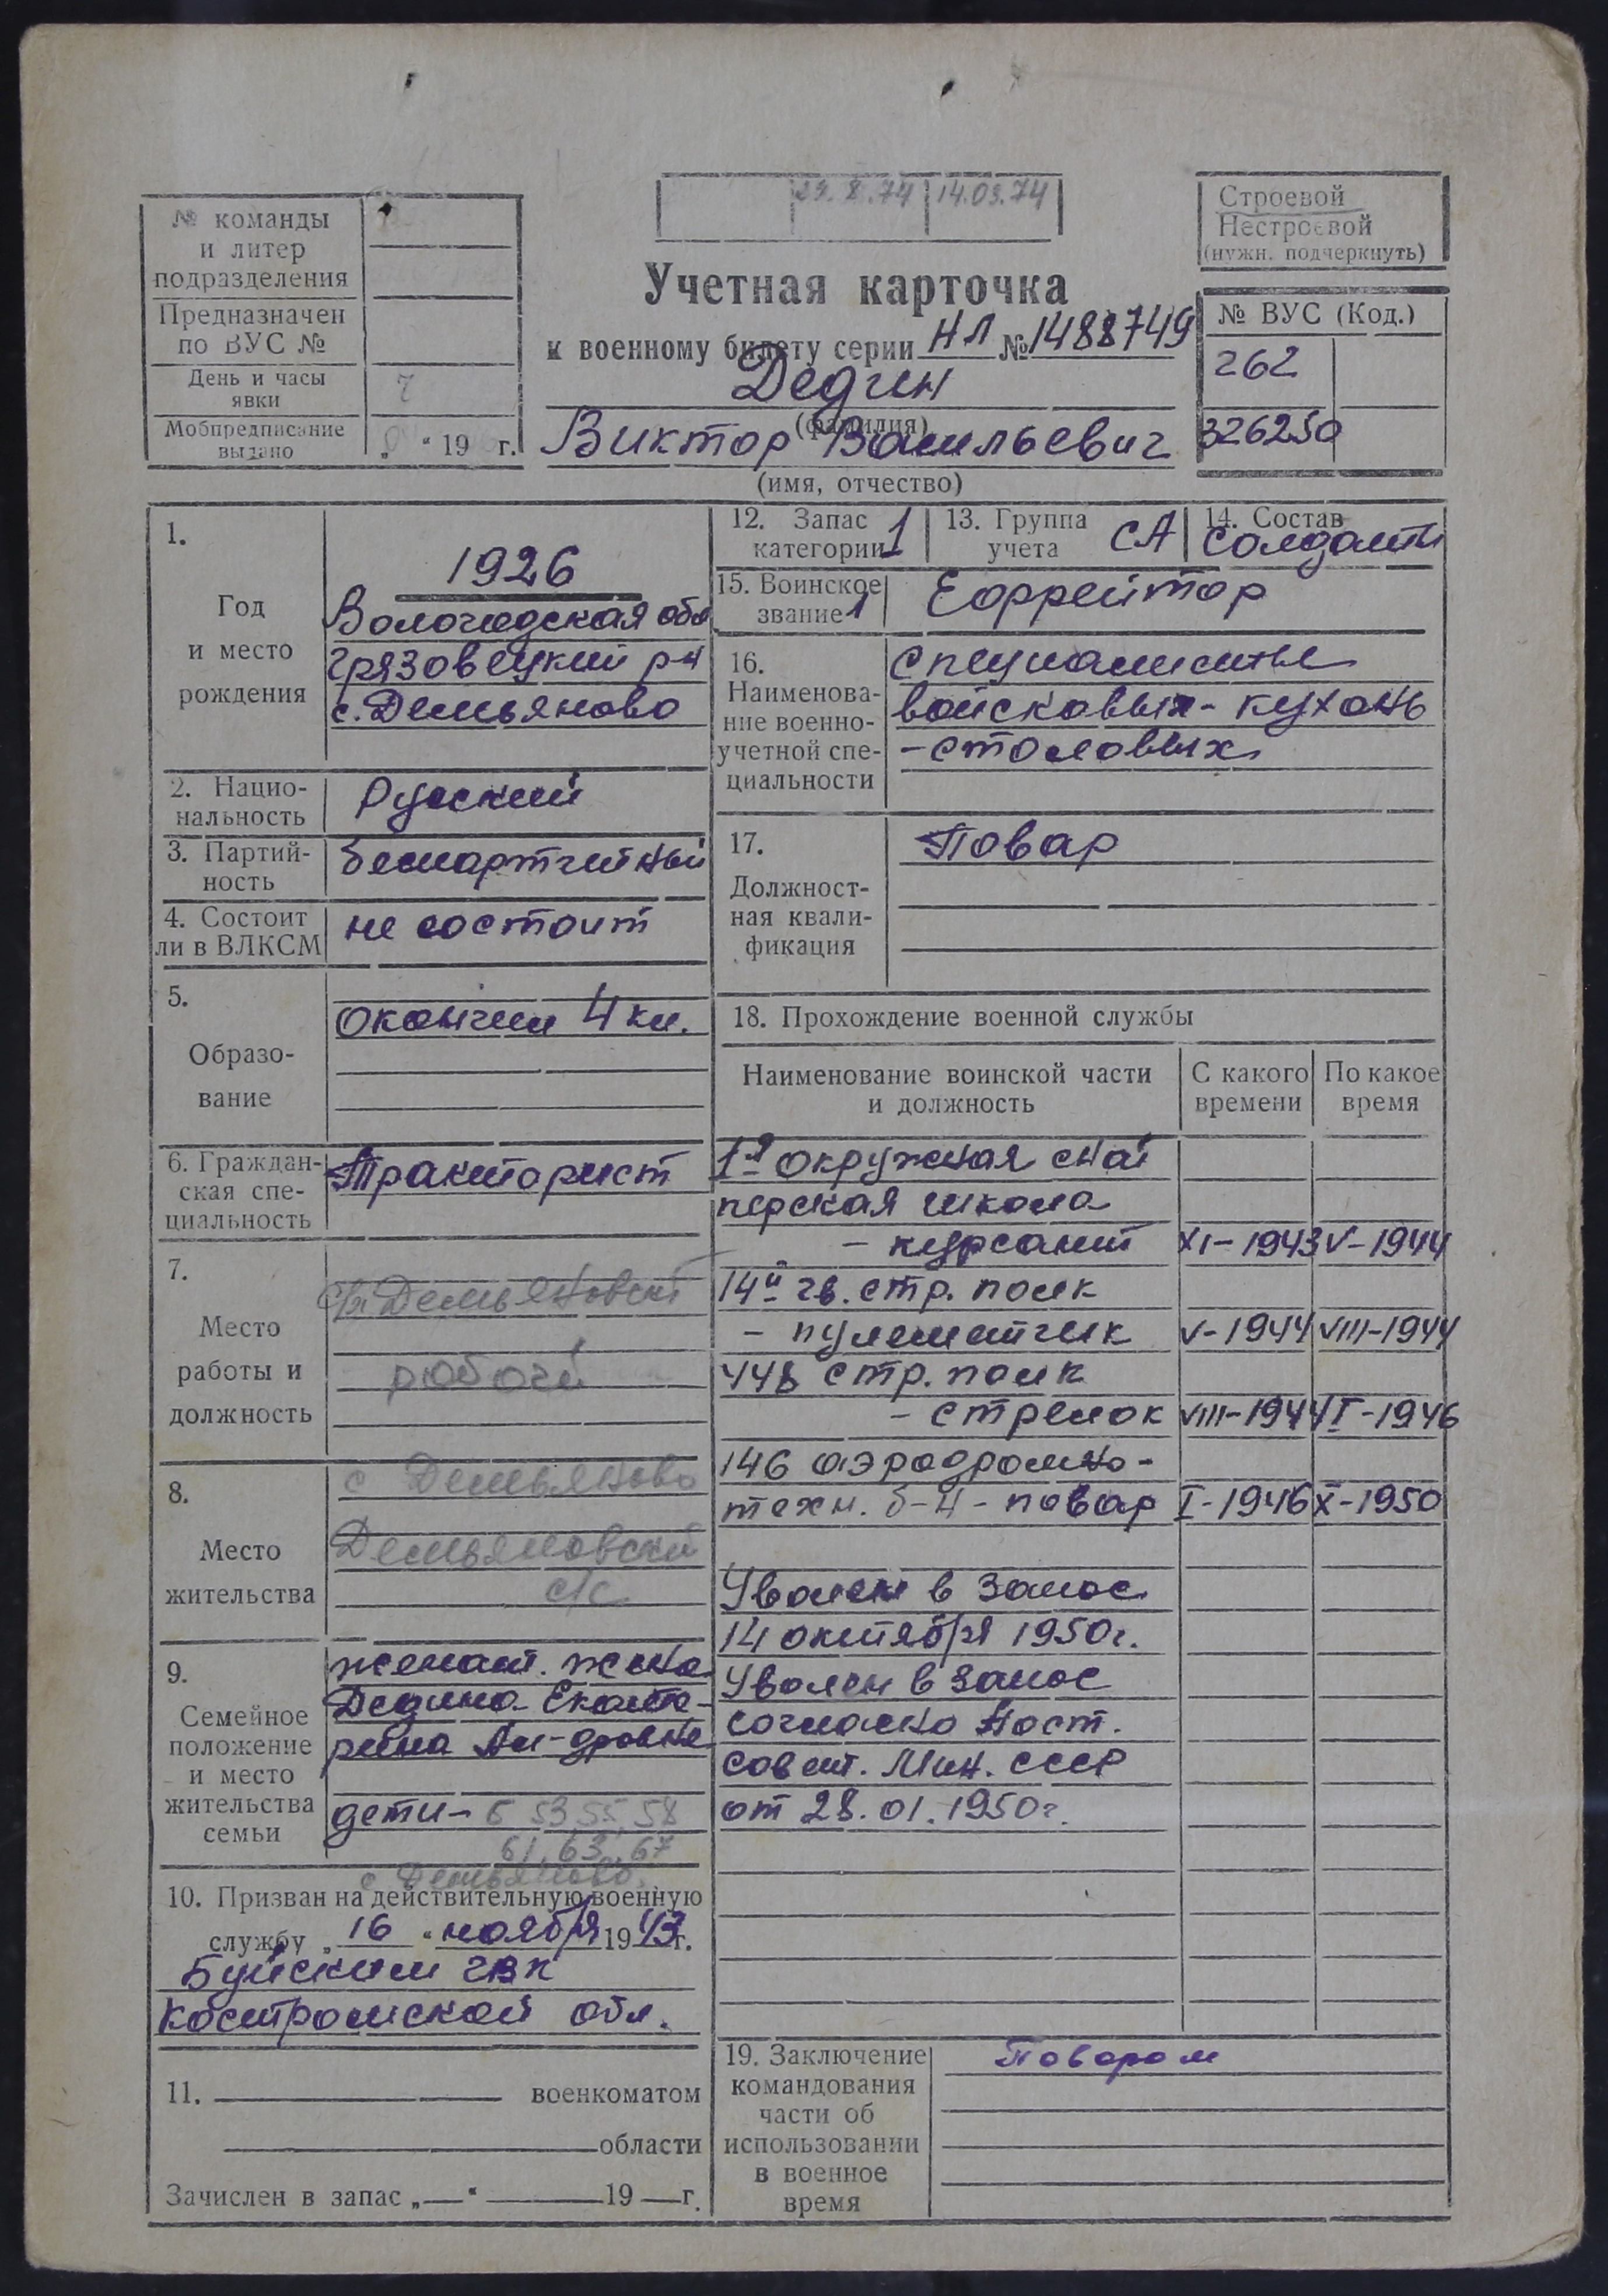 № команды
и литер
подразделения
Предназначен
по ВУС №
День и часы
явки
7
Мобпредписание
выдано
„ “ 19 г.
29.X.74 14.03.74
Строевой
Нестроевой
(нужн. подчеркнуть)
Учетная карточка
к военному билету серии НЛ № 1488749
Дедин
(фамилия)
Виктор Васильевич
(имя, отчество)
№ ВУС (Код.)
262
326250
1.
Год
и место
рождения
1926
Вологодская обл
Грязовецкий р-н
с. Демьяново
2. Нацио-
нальность
Русский
3. Партий-
ность
беспартийный
4. Состоит
ли в ВЛКСМ
не состоит
5.
Образо-
вание
Окончил 4 кл.
6. Граждан-
ская спе-
циальность
Тракторист
7.
Место
работы и
должность
Демьяновский
рабочий
8.
Место
жительства
с Демьяново
Демьяновский
с/с
9.
Семейное
положение
и место
жительства
семьи
женат. жена
Дедина Екате-
рина
дети - 6 53, 55, 58
61, 63, 67
с Демьяново
10. Призван на действительную военную
службу „ 16 “ ноября 1943 г.
Буйским ГВК
Костромской обл.
11. военкоматом
области
Зачислен в запас „—“ 19 — г.
12. Запас
категории 1
13. Группа
учета СА
14. Состав
Солдаты
15. Воинское
звание 1
Ефрейтор
16.
Наименова-
ние военно-
учетной спе-
циальности
Специалисты
войсковых - кухонь
- столовых
17.
Должност-
ная квали-
фикация
Повар
18. Прохождение военной службы
Наименование воинской части
и должность
С какого
времени
По какое
время
1я окружная снай
перская школа
- курсант XI-1943 V-1944
14й гв. стр. полк
- пулеметчик V-1944 VIII-1944
448 стр. полк
- стрелок VIII-1944 I-1946
146 аэродромно-
техн. б-н - повар I-1946 X-1950
Уволен в запас
14 октября 1950г.
Уволен в запас
согласно Пост.
Совет. Мин. СССР
от 28.01.1950г.
19. Заключение
командования
части об
использовании
в военное
время
Поваром